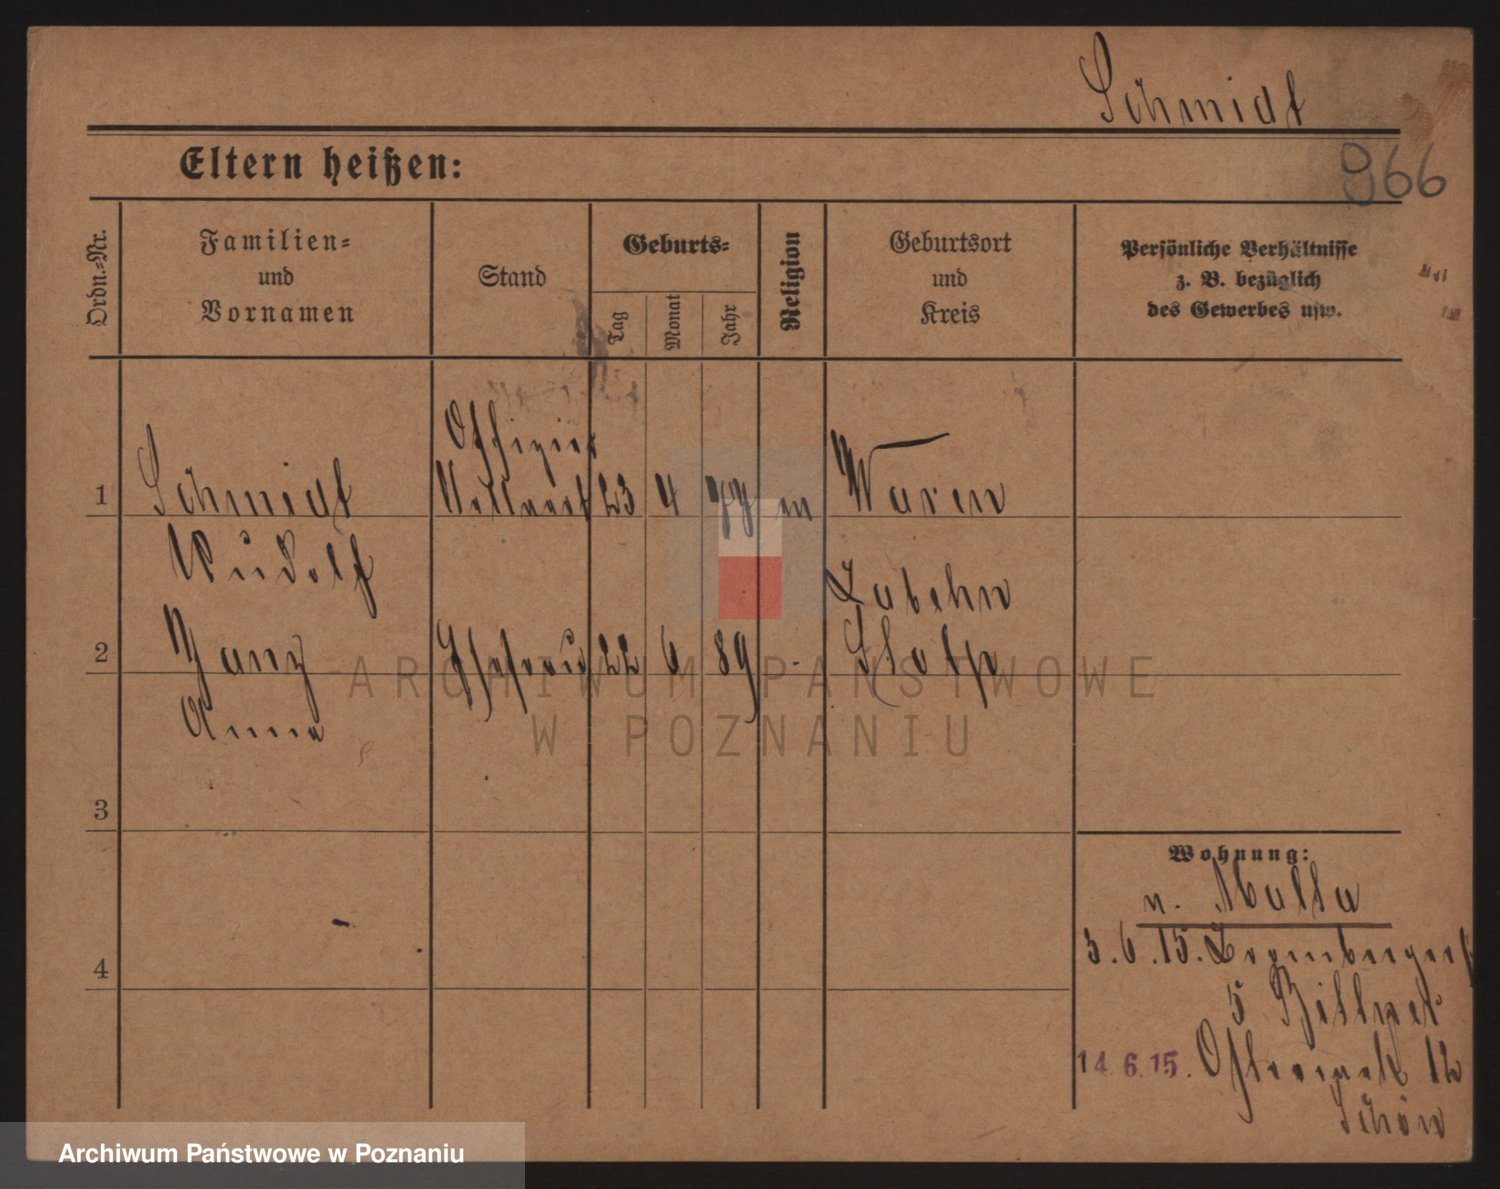 Schmidt
Eltern heißen:
966
Ordn.-Nr.
Familien-
und
Vornamen
Stand
Geburts-
Tag
Monat
Jahr
Religion
Geburtsort
und
Kreis
Persönliche Verhältnisse
z. B. bezüglich
des Gewerbes usw.
Offizier
1 Schmidt 23 4 77 m Waren
Rudolf
Zabehn
2 Janz Ehefrau 22 6 89 - Stolp
Anna
ARCHIWUM PAŃSTWOWE
W POZNANIU
3
Wohnung:
n. Malta
3.6.15. Brombergerst
4
5
14.6.15. 12
Schön
Archiwum Państwowe w Poznaniu